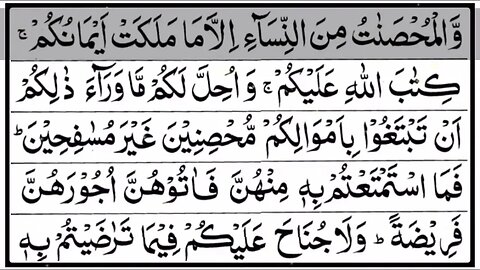 وَّالْمُحْصَنٰتُ مِنَ النِّسَآءِ اِلَّا مَا مَلَكَتْ اَيْمَانُكُمْ ۚ
كِتٰبَ اللّٰهِ عَلَيْكُمْ ۚ وَ اُحِلَّ لَكُمْ مَّا وَرَآءَ ذٰلِكُمْ
اَنْ تَبْتَغُوْا بِاَمْوَالِكُمْ مُّحْصِنِيْنَ غَيْرَ مُسٰفِحِيْنَ ؕ
فَمَا اسْتَمْتَعْتُمْ بِهٖ مِنْهُنَّ فَاٰتُوْهُنَّ اُجُوْرَهُنَّ
فَرِيْضَةً ؕ وَلَا جُنَاحَ عَلَيْكُمْ فِيْمَا تَرٰضَيْتُمْ بِهٖ